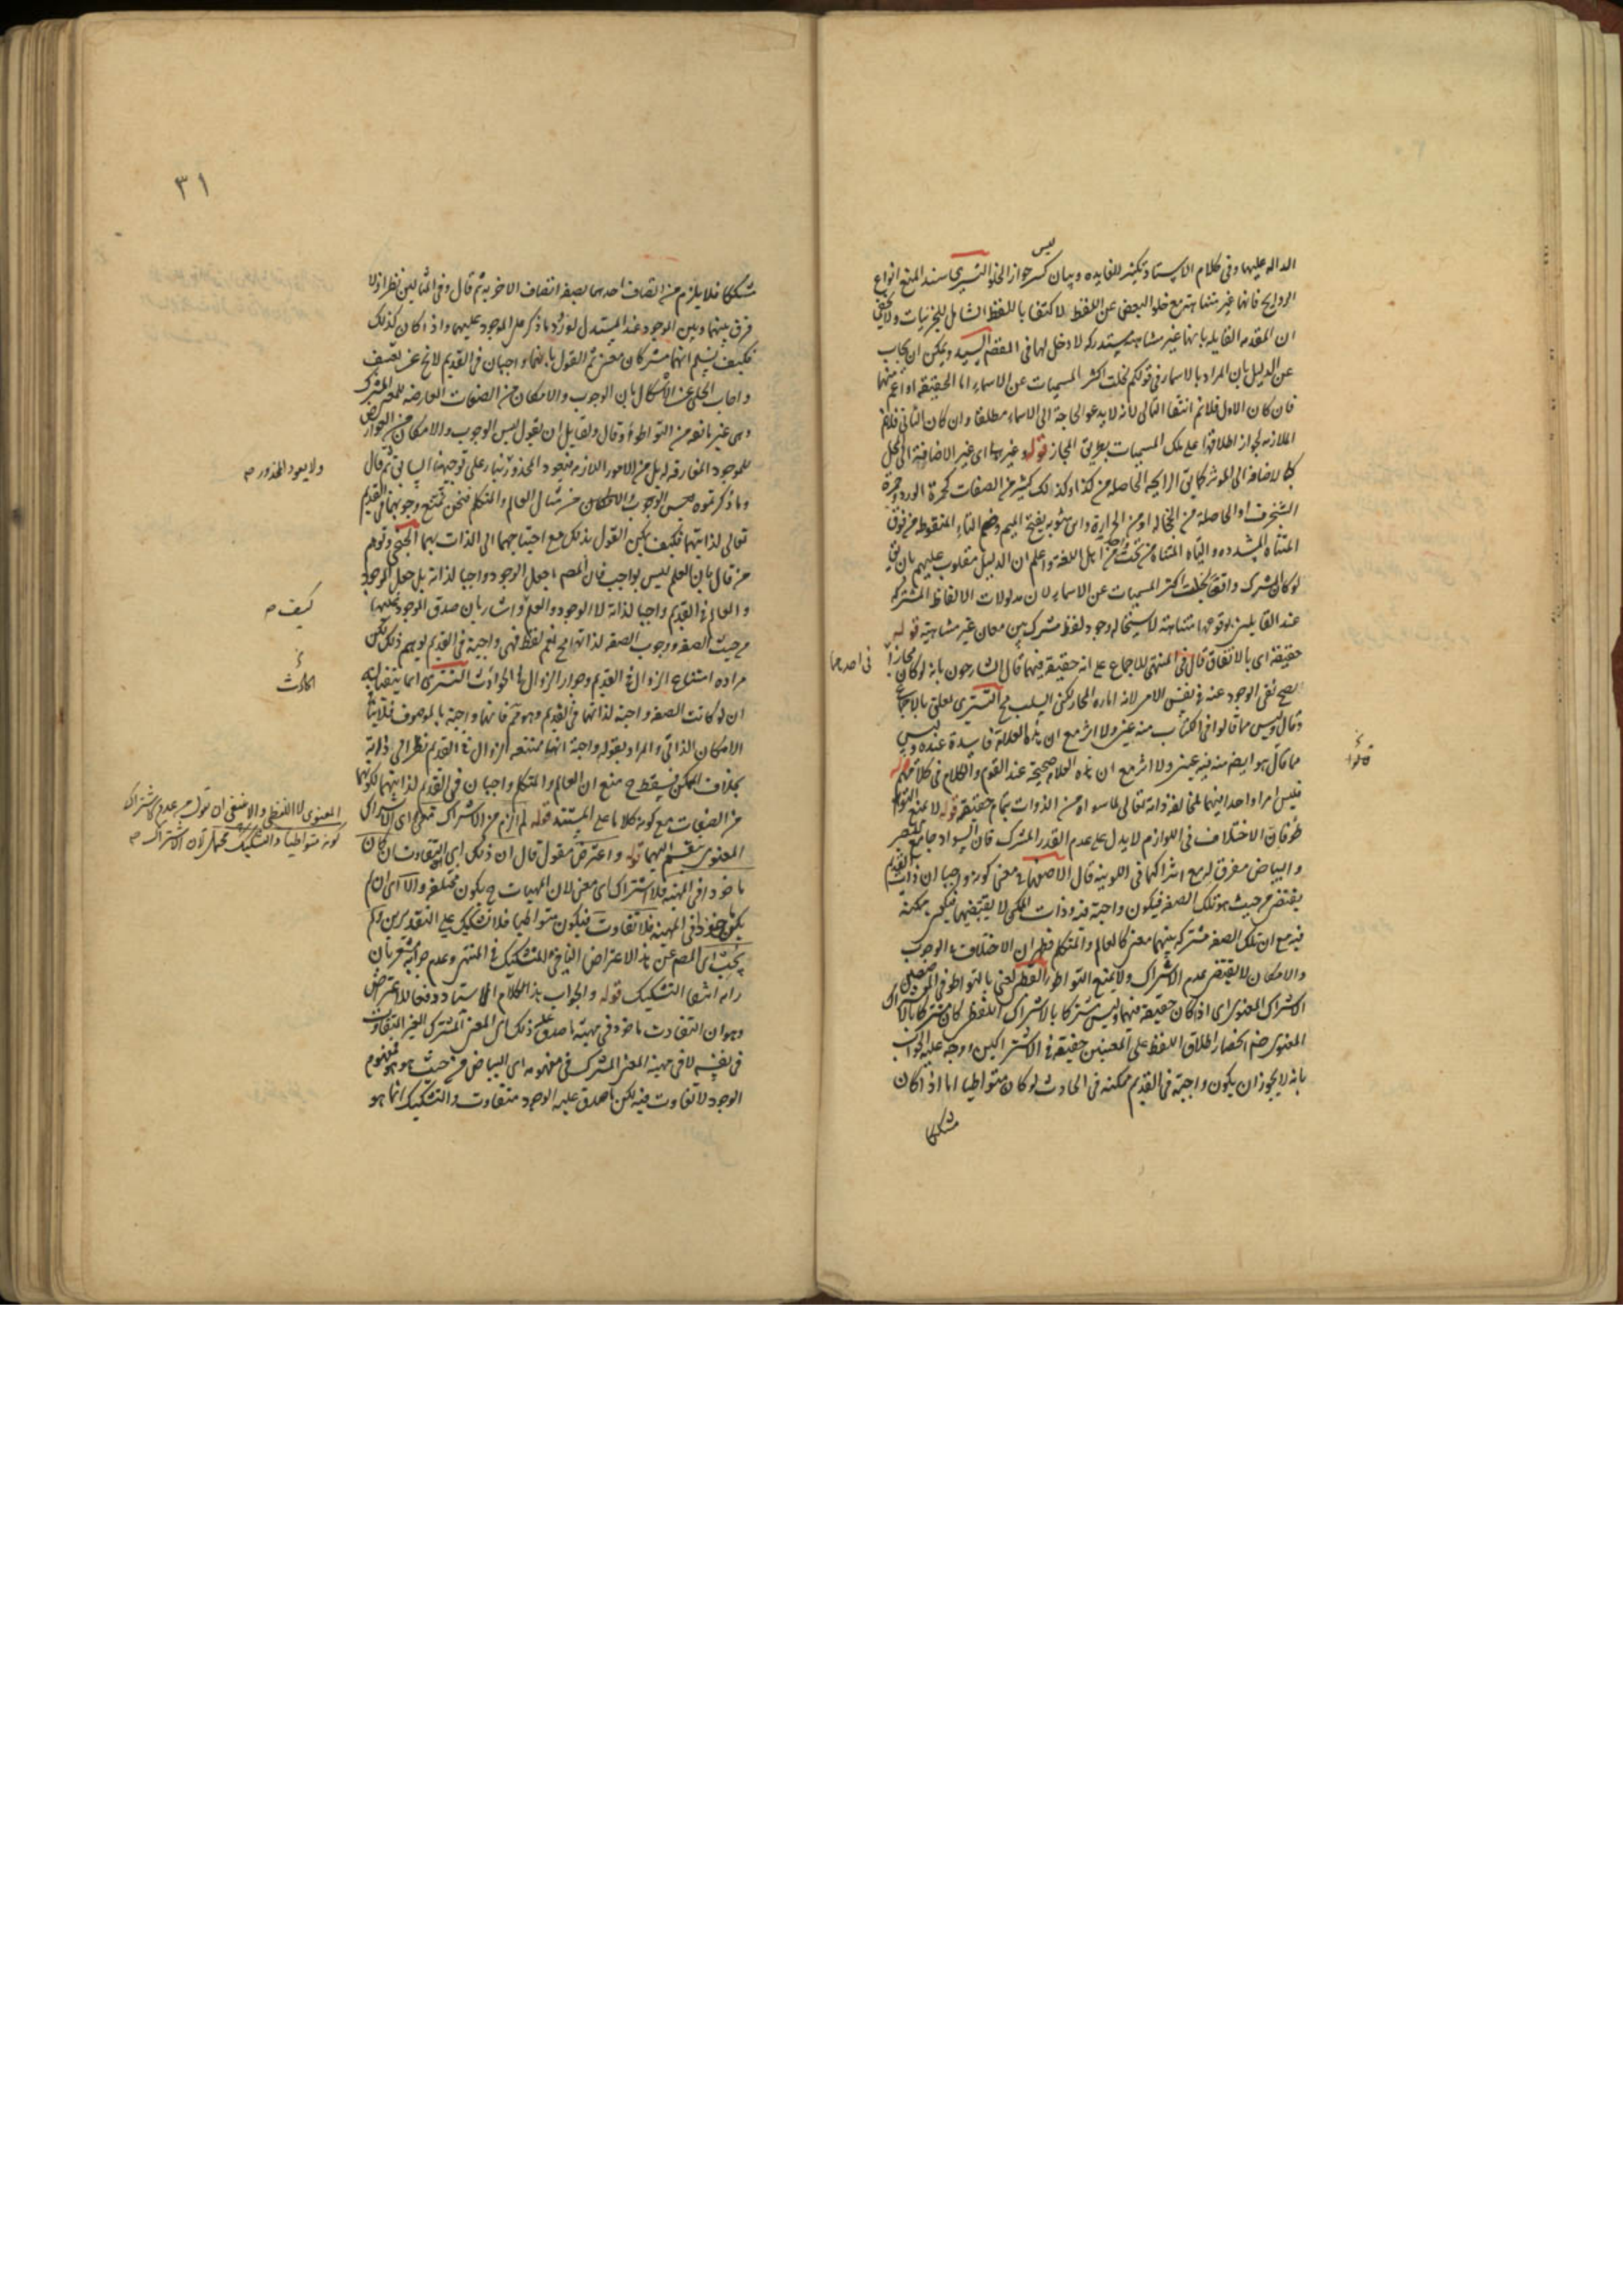 الداله عليها وفى كلام الاستاد تكثير للفايده وبيان كسر جواز الخلو التسترى سند المنع انواع
ليس
الروايح فانها غير متناهية مع خلو البعض عن اللفظ لاكتفا باللفظ الشامل للجزئيات ولا يخفى
ان المقدمه القايله بانها غير متناهية مستدركه لا دخل لها فى المقصم السيد ويمكن ان يجاب
عن الدليل بان المراد بالاسماء فى قولكم لخلت اكثر المسميات عن الاسماء اما الحقيقه او اعم منها
فان كان الاول فلانم انتفا التالى لانه لا يدعو الحاجة الى الاسماء مطلقا وان كان الثانى فلانم
الملازمه لجواز اطلاقها على تلك المسميات بطريق المجاز قوله وغيرها اى غير الاضافة الى المحل
كالاضافه الى الموثر كما يق الرايحه الحاصله من كذا وكذلك كثير من الصفات كحمرة الورد وحمرة
الشنجرف او الحاصلة من الخجاله او من الحرارة وابن متويه بفتح الميم وضم التاء المنقوطه من فوق
المثناه المشدده والياء المثناة من تحت من اهل اللغة واعلم ان الدليل مقلوب عليهم بان يق
لو كان المشترك واقعا لخلت اكثر المسميات عن الاسماء لان مدلولات الالفاظ المشتركه
عند القايلين بوقوعها متناهية لاستحاله وجود لفظ مشترك بين معان غير متناهية قوله
حقيقة اى بالاتفاق قال فى المنتهى للاجماع على انه حقيقة فيهما قال الشارحون بانه لو كان مجازا
فى احدهما
لصح نفى الوجود عنه فى نفس الامر لانه اماره المجاز لكن السلب مح التسترى لعلتى بالاجماع
وقال وليس مما قالوا فى الكتاب منه عين ولا اثر مع ان هذه العلامة فاسدة عنده وليس
قالوا
مما قال هو ايضا منه فيه عين ولا اثر مع ان هذه العلامه صحيحة عند القوم والكلام فى كلامهم قوله
فليس امرا واحدا بينهما لمخالفة ذاته تعالى لما سواه من الذوات بتمام حقيقته قوله لا يمنع التواطؤ
فان الاختلاف فى اللوازم لا يدل على عدم القدر المشترك فان السواد جامع للبصر
والبياض مفرق له مع اشتراكهما فى اللونية قال الاصفهانى معنى كونه واجبا ان ذات القديم
يقتضى من حيث هو تلك الصفه فيكون واجبة فيه وذات الممكن لا يقتضيها فيكون ممكنة
فيه مع ان تلك الصفه مشتركه بينهما معنى كالعالم والمتكلم فظهر ان الاختلاف بالوجوب
والامكان لا يقتضى عدم الاشتراك ولا يمنع التواطؤ القطبى يعنى بالتواطؤ فى الموضعين
الاشتراك المعنوى اى اذا كان حقيقة فيهما وليس مشتركا بالاشتراك اللفظى كان مشتركا بالاشتراك
المعنوى ضم انحصار اطلاق اللفظ على المعنيين حقيقة فى الاشتراكين ووجه عليه الجواب
بانه لا يجوز ان يكون واجبة فى القديم ممكنة فى الحادث لو كان متواطيا اما اذا كان
مشككا
٣١
مشككا فلا يلزم من اتصاف احدهما بصفة اتصاف الاخر به ثم قال وفى المثالين نظر اذ لا
فرق بينهما وبين الموجود عند المستدل لورود ما ذكر على الموجود عليهما واذا كان كذلك
فكيف يسلم انهما مشتركان معنى ثم القول بانهما واجبان فى القديم لا يخ عن تعسف
واجاب الحلى عن الاشكال بان الوجوب والامكان من الصفات العارضه للمعنى المشترك
وهى غير مانعه من التواطؤ وقال ولقايل ان يقول ليس الوجوب والامكان من العوارض
للموجود المفارقه له بل من الامور اللازمه فيعود المحذور بناء على توجيهنا السابق ثم قال
ولا يعود المحذور صح
وما ذكرتموه من الوجوب والامكان من مثال العالم والمتكلم فنحن نمنع وجوبهما فى القديم
تعالى لذاتيهما فكيف يمكن القول بذلك مع احتياجهما الى الذات بهما الخنجى وتوهم
من قال بان العلم ليس بواجب فان المصم جعل الوجود واجبا لذاته بل جعل الموجود
والعالم فى القديم واجبا لذاته لا الوجود والعلم واشار بان صدق الموجود عليهما
كيف صح
من حيث الصفه ووجوب الصفه لذاتها مح نعم لفظ فهى واجبة فى القديم يوهم ذلك لكن
مراده امتناع الزوال فى القديم وجواز الزوال فى الحوادث التسترى انما يتفصابه
الحادث
ان لو كانت الصفه واجبة لذاتها فى القديم وهو مم فانها واجبة بالموصوف فلا ينافى
الامكان الذاتى والمراد بقوله واجبة انها ممتنعه الزوال فى القديم نظرا الى ذاته
بخلاف الممكن فيسقط ح منع ان العالم والمتكلم واجبان فى القديم لذاتيهما لكونهما
من الصفات مع كونه كلاما على المستند قوله لم الزم من الاشتراك فعلم اى الاشتراك
المعنوى لا اللفظى والا منفى ان تقول من عدم الاشتراك
كونه متواطيا والتشكيك محتمل لان الاشتراك صح
المعنوى ينقسم اليهما قوله واعترض مقول قال ان ذلك اى التفاوت ان كان
ماخوذا فى المهية فلا اشتراك اى معنى لان المهيات ح يكون مختلفه والا اى ان لم
يكن ماخوذا فى المهية فلا تفاوت فيكون متواطيا فلا تشكيك على التقديرين ولم
يجب اى المصم عن هذا الاعتراض النافى للتشكيك فى المنتهى وعدم جوابه مشعر بان
رايه انتفا التشكيك قوله والجواب هذا كلام الاستاد دفعا للاعتراض
وهو ان التفاوت ماخوذ فى مهية ما صدق عليه ذلك اى المعنى المشترك الغير المتفاوت
فى نفسه لا فى مهية المعنى المشترك فى مفهومه اى البياض من حيث هو هو فمفهوم
الوجود لا تفاوت فيه لكن ما صدق عليه الوجود متفاوت والتشكيك انما هو